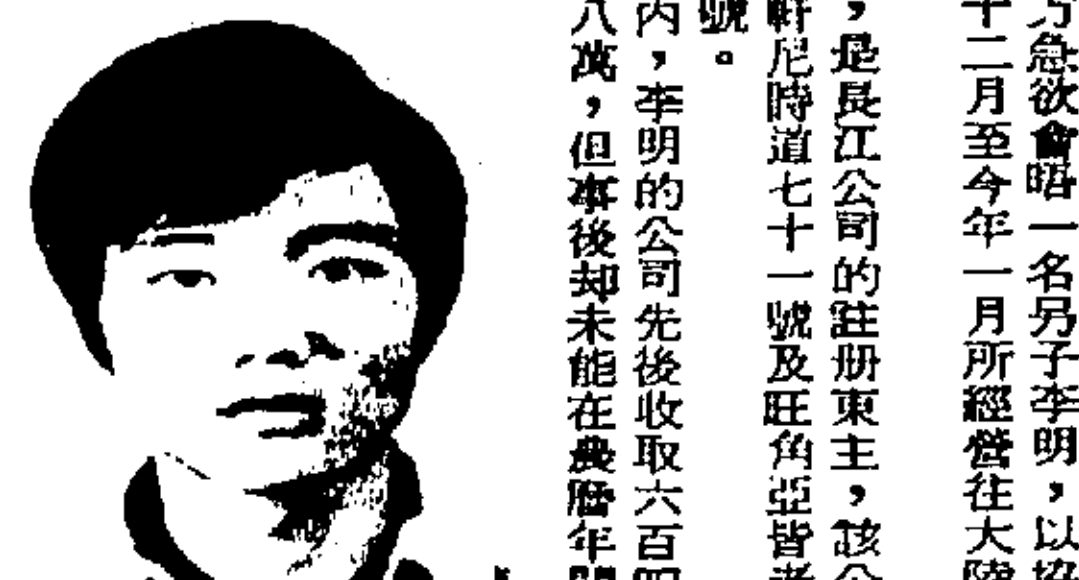 方急欲會晤一名男子李明，以協
十二月至今年一月所經營往大陸
，是長江公司的註册東主，該公
軒尼時道七十一號及旺角亞皆老
號。
內，李明的公司先後收取六百四
八萬，但事後却未能在農曆年間